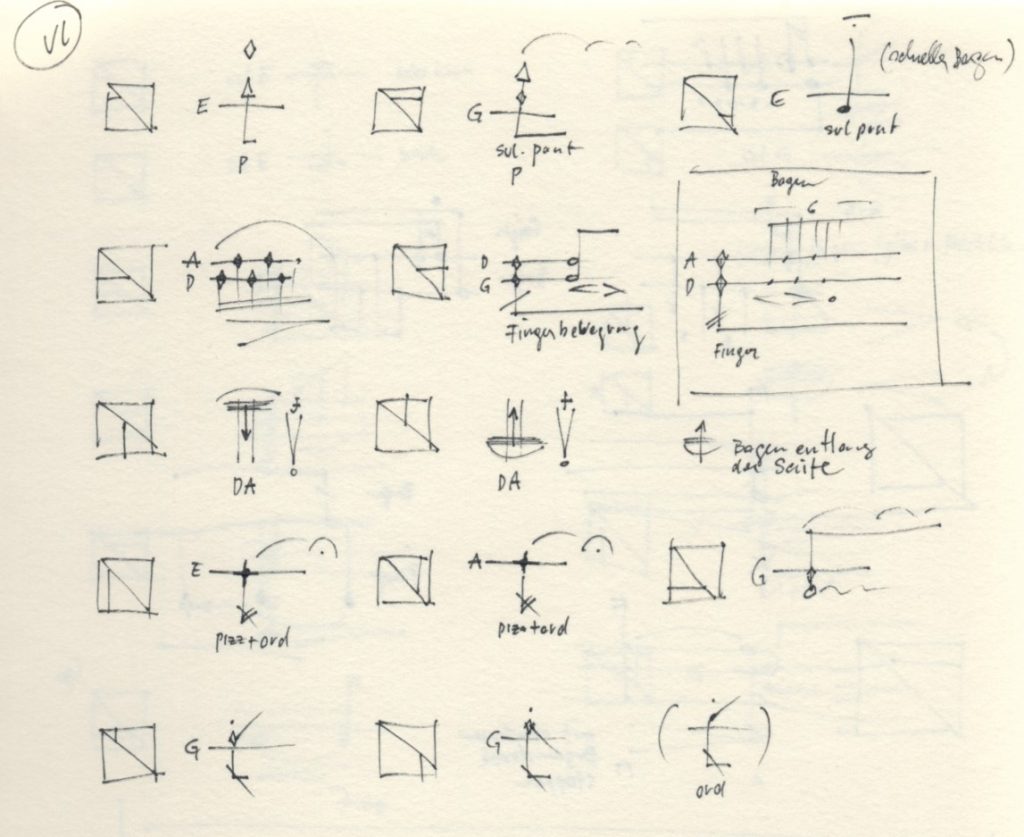 Vl
E
P
G
sul. pont
P
E
(schnelle Bogen)
sul pont
A
D
D
G
Fingerbewegung
Bogen
6
A
D
Finger
DA
DA
Bogen entlang
der Saite
E
pizz+ord
A
pizz+ord
G
G
G
ord